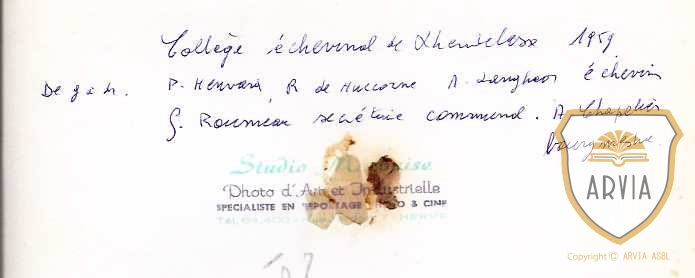 Collège échevinal de Xhendelesse 1959
De g à dr. P. Hervars, R de Huccorne A. Langhoor échevins
G. Rousseau secrétaire communal. A Chapelier
bourgmestre.
Studio
Photo d'Art et Industrielle
SPECIALISTE EN REPORTAGE & CINE
TEL. 64.400 HERVE
ARVIA
Copyright © ARVIA ASBL